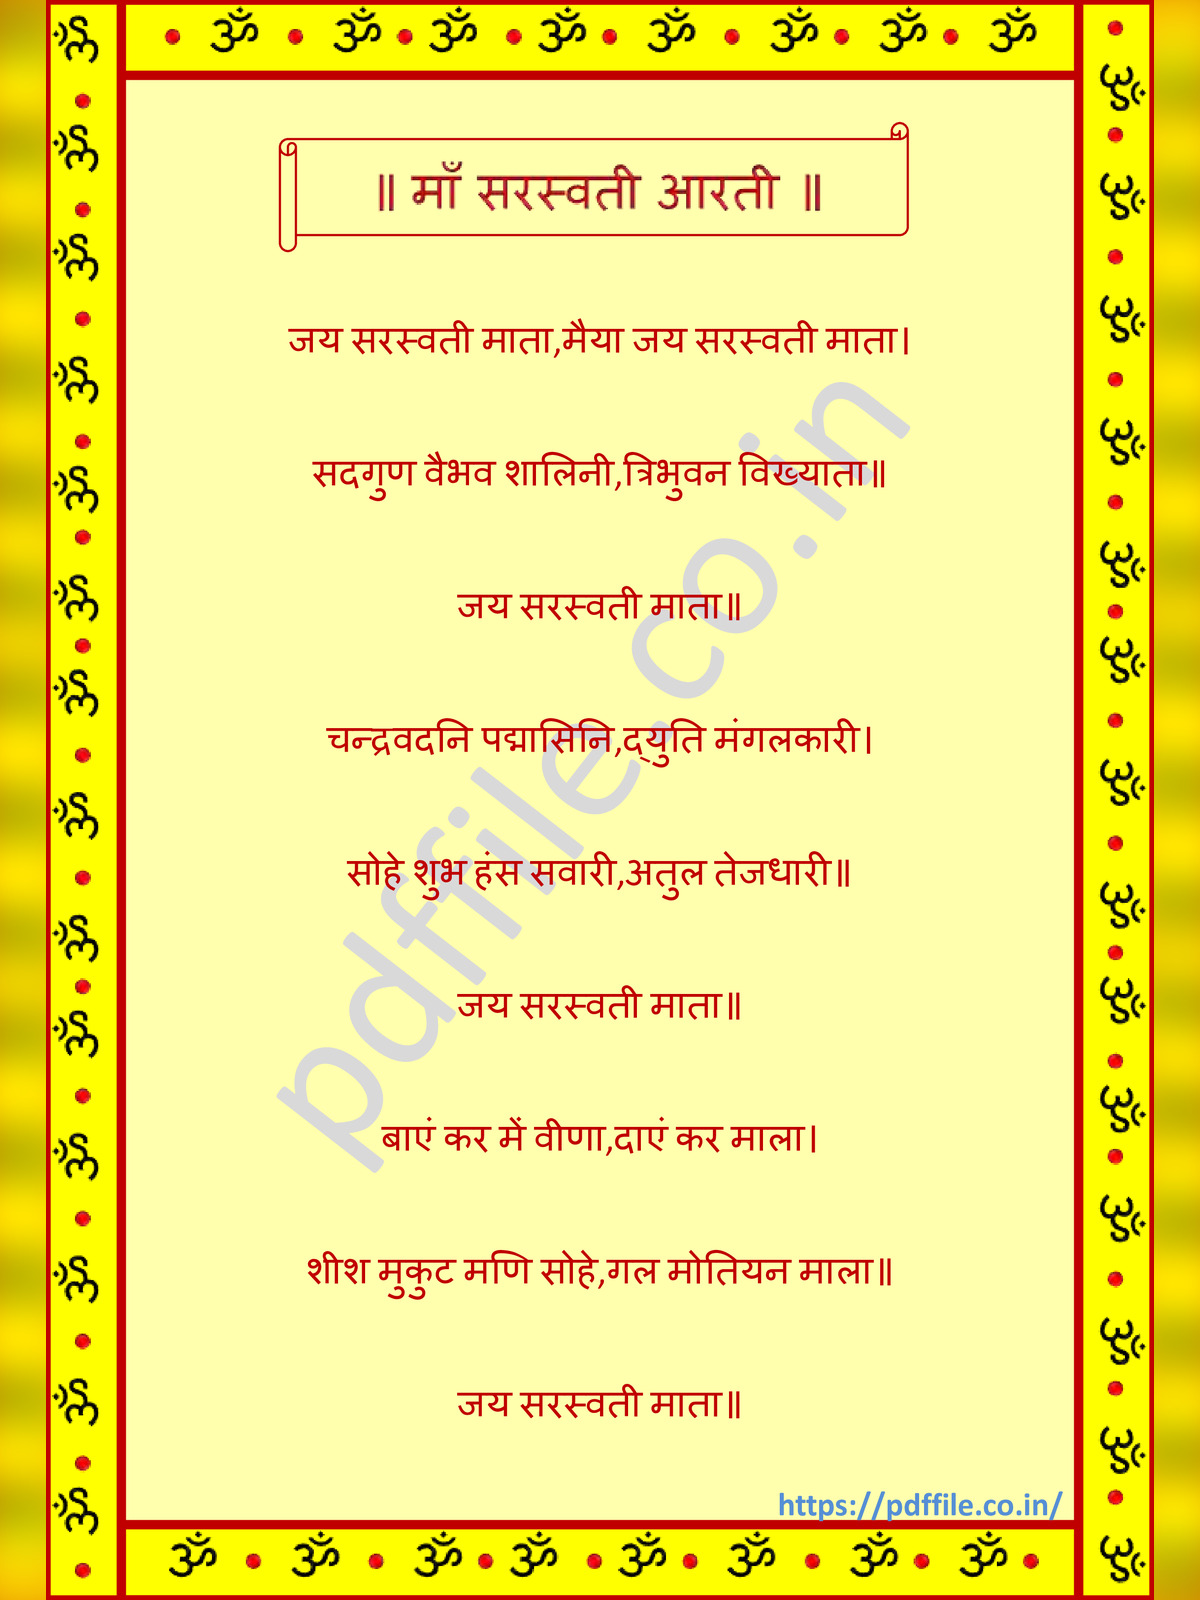 ॥ माँ सरस्वती आरती ॥
जय सरस्वती माता,मैया जय सरस्वती माता।
सदगुण वैभव शालिनी,त्रिभुवन विख्याता॥
जय सरस्वती माता॥
चन्द्रवदनि पद्मासिनि,द्युति मंगलकारी।
सोहे शुभ हंस सवारी,अतुल तेजधारी॥
जय सरस्वती माता॥
बाएं कर में वीणा,दाएं कर माला।
शीश मुकुट मणि सोहे,गल मोतियन माला॥
जय सरस्वती माता॥
pdffile.co.in
https://pdffile.co.in/
ॐ ॐ ॐ ॐ ॐ ॐ ॐ ॐ
ॐ ॐ ॐ ॐ ॐ ॐ ॐ ॐ